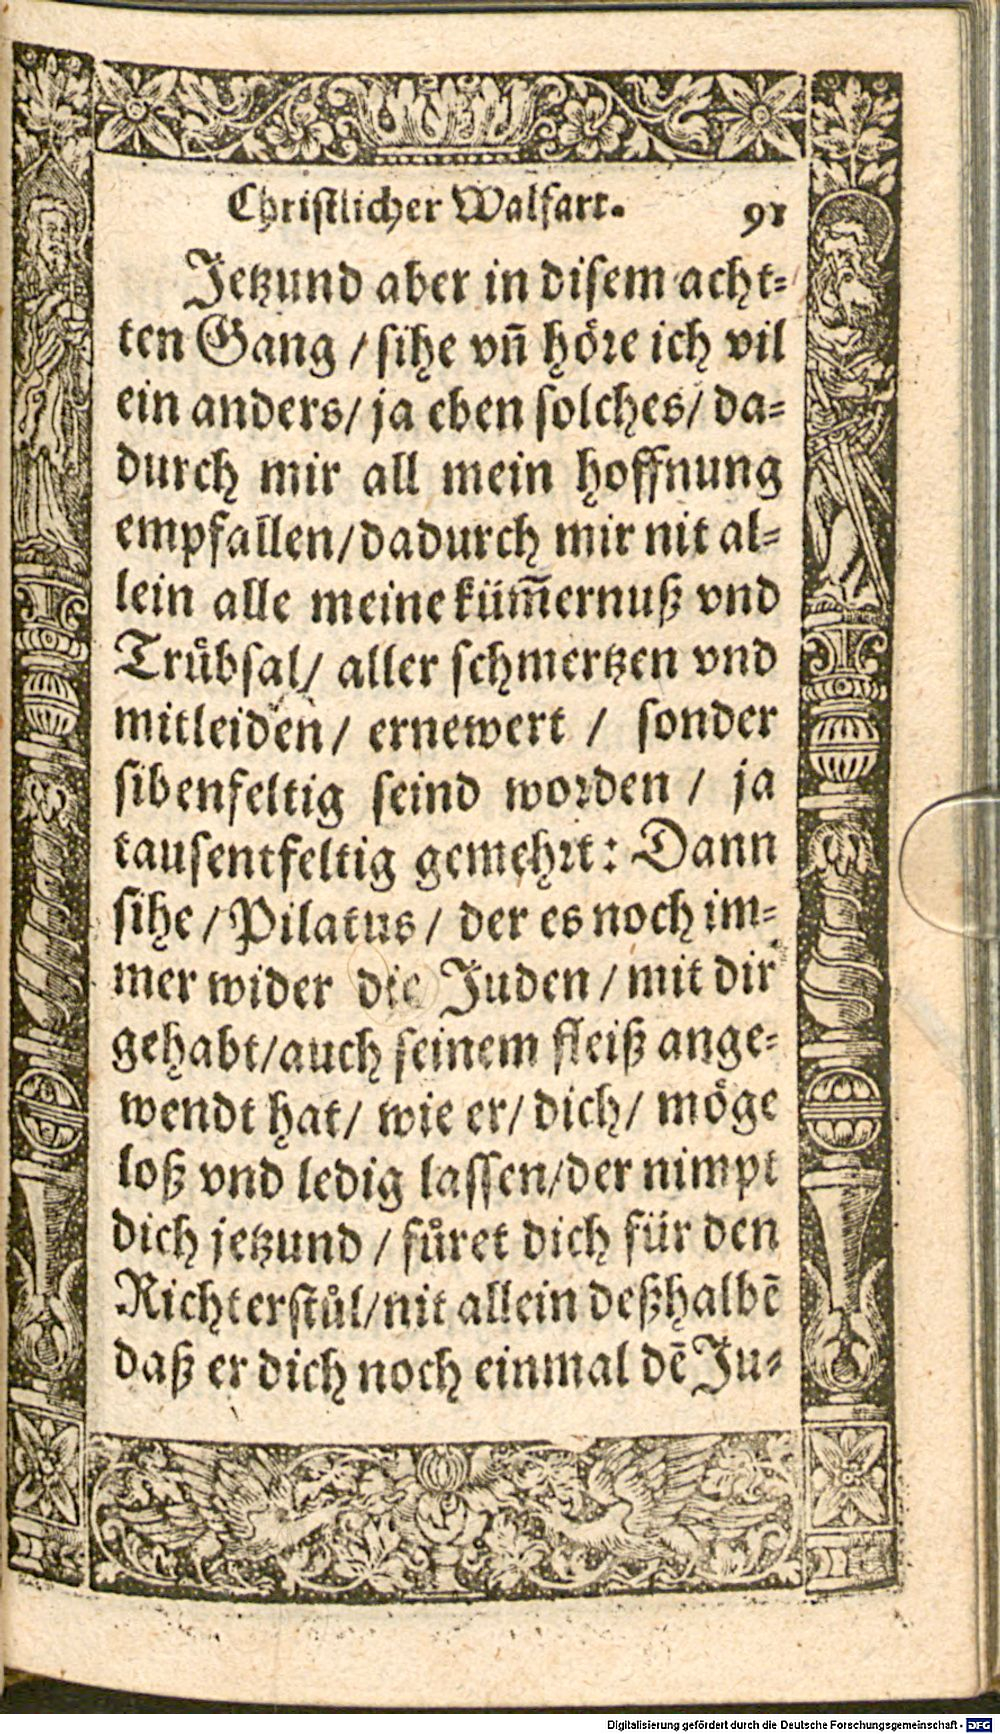 Christlicher Walfart. 91
Jetzund aber in disem acht-
ten Gang / sihe vn̄ höre ich vil
ein anders / ja eben solches / da-
durch mir all mein hoffnung
empfallen / dadurch mir nit al-
lein alle meine küm̄ernuß vnd
Trůbsal / aller schmertzen vnd
mitleiden / ernewert / sonder
sibenfeltig seind worden / ja
tausentfeltig gemehrt: Dann
sihe / Pilatus / der es noch im-
mer wider die Juden / mit dir
gehabt / auch seinem fleiß ange-
wendt hat / wie er / dich / möge
loß vnd ledig lassen / der nimpt
dich jetzund / fůret dich für den
Richterstůl / nit allein deßhalbē
daß er dich noch einmal dē Ju-
Digitalisierung gefördert durch die Deutsche Forschungsgemeinschaft - DFG